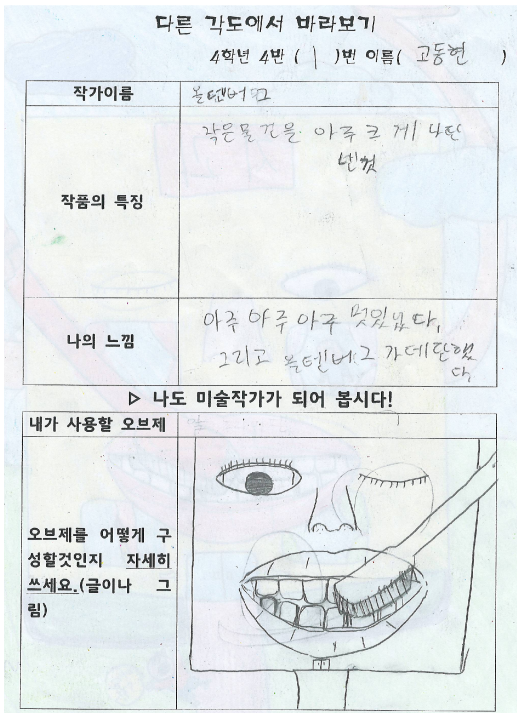 다른 각도에서 바라보기
4학년 4반 ( 1 )번 이름( 고동현 )
작가이름
올덴버그
작품의 특징
작은물건을 아주 크게 나타
낸것
나의 느낌
아주 아주 아주 멋있었다,
그리고 올덴버그가 대단했
다,
▷ 나도 미술작가가 되어 봅시다!
내가 사용할 오브제
오브제를 어떻게 구
성할것인지 자세히
쓰세요.(글이나 그
림)